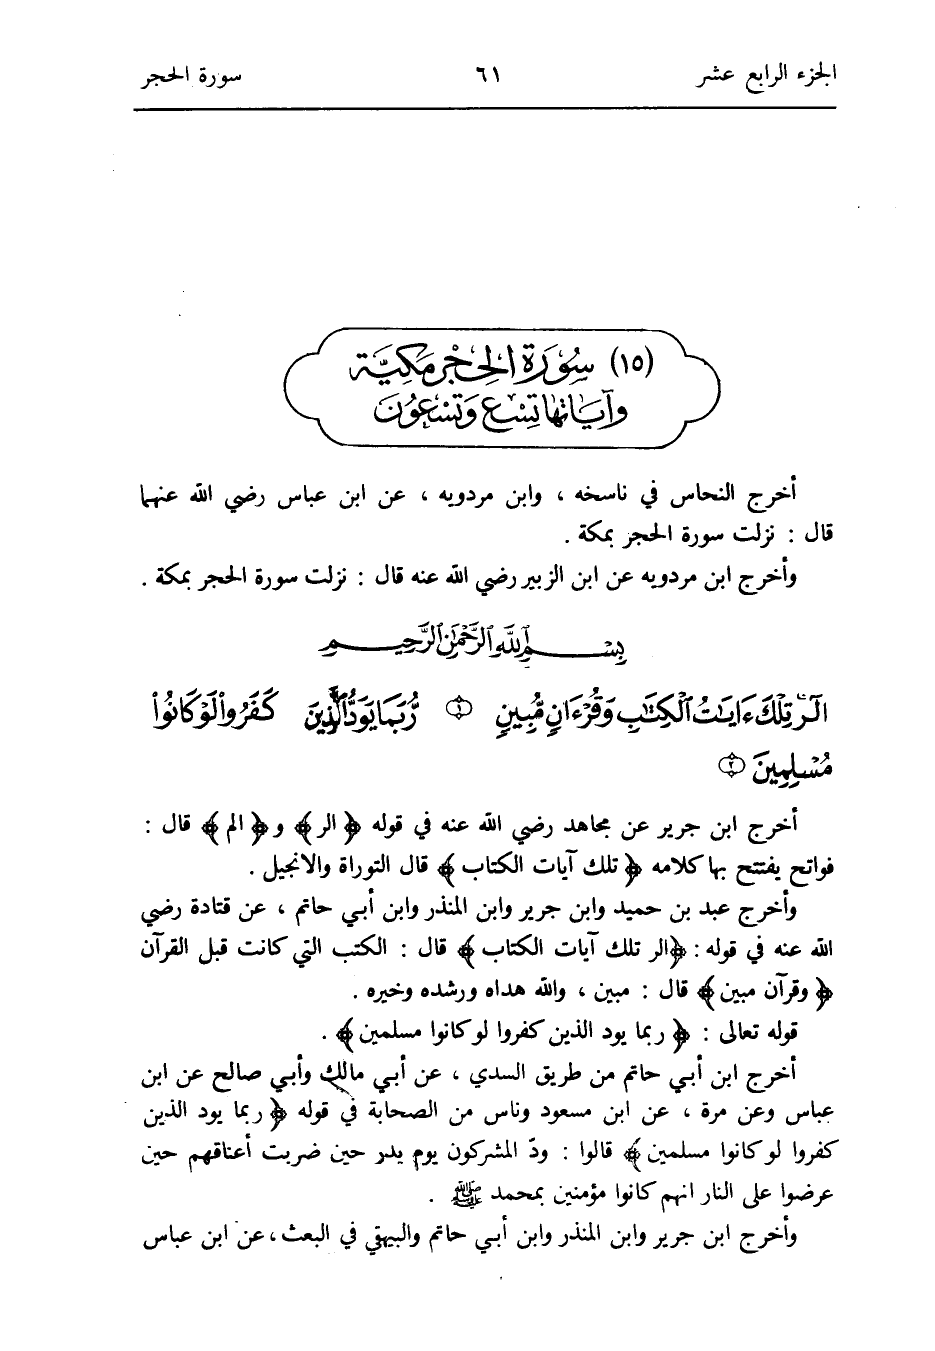 الجزء الرابع عشر ٦١ سورة الحجر
(١٥) سُورَة الحِجْر مَكِّيَّة
وَآيَاتهَا تِسْع وَتِسْعُونَ
أخرج النحاس في ناسخه ، وابن مردويه ، عن ابن عباس رضي الله عنهما
قال : نزلت سورة الحجر بمكة .
وأخرج ابن مردويه عن ابن الزبير رضي الله عنه قال : نزلت سورة الحجر بمكة .
بِسْمِ ٱللَّهِ ٱلرَّحْمَٰنِ ٱلرَّحِيمِ
الٓر تِلْكَ ءَايَاتُ ٱلْكِتَٰبِ وَقُرْءَانٍ مُّبِينٍ ۝١ رُّبَمَا يَوَدُّ ٱلَّذِينَ كَفَرُوا۟ لَوْ كَانُوا۟
مُسْلِمِينَ ۝٢
أخرج ابن جرير عن مجاهد رضي الله عنه في قوله ﴿ الر ﴾ و ﴿ الم ﴾ قال :
فواتح يفتتح بها كلامه ﴿ تلك آيات الكتاب ﴾ قال التوراة والانجيل .
وأخرج عبد بن حميد وابن جرير وابن المنذر وابن أبي حاتم ، عن قتادة رضي
الله عنه في قوله : ﴿الر تلك آيات الكتاب ﴾ قال : الكتب التي كانت قبل القرآن
﴿ وقرآن مبين ﴾ قال : مبين ، والله هداه ورشده وخيره .
قوله تعالى : ﴿ ربما يود الذين كفروا لو كانوا مسلمين ﴾ .
أخرج ابن أبي حاتم من طريق السدي ، عن أبي مالك وأبي صالح عن ابن
عباس وعن مرة ، عن ابن مسعود وناس من الصحابة في قوله ﴿ ربما يود الذين
كفروا لو كانوا مسلمين ﴾ قالوا : ودّ المشركون يوم بدر حين ضربت أعناقهم حين
عرضوا على النار انهم كانوا مؤمنين بمحمد ﷺ .
وأخرج ابن جرير وابن المنذر وابن أبي حاتم والبيهقي في البعث ، عن ابن عباس